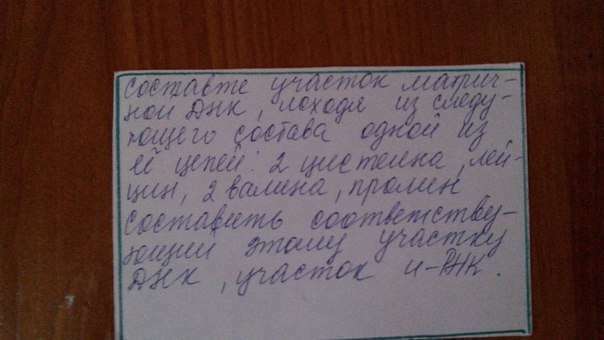 составте участок матрич-
ной ДНК, исходя из следу-
ющего состава одной из
её цепей: 2 цистеина, лей-
цин, 2 валина, пролин
составить соответству-
ющий этому участку
ДНК, участок и-РНК.